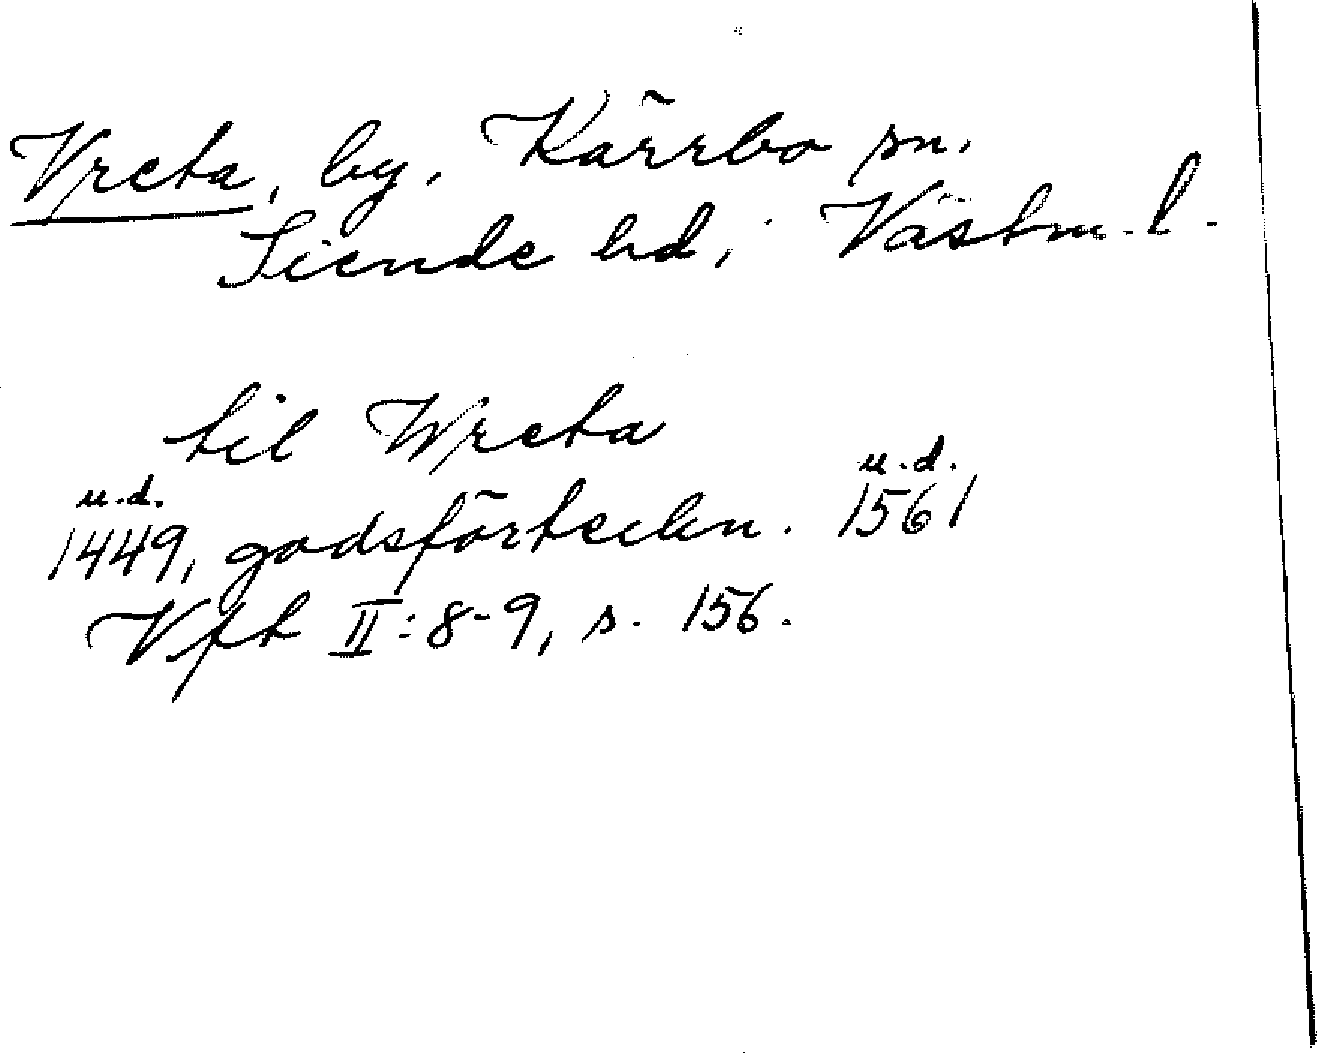 Vreta, by, Kärrbo sn.
Siende hd, Västm. l.
til Wreta
u.d. u.d.
1449, godsförteckn. 1561
Vft II:8-9, s. 156.